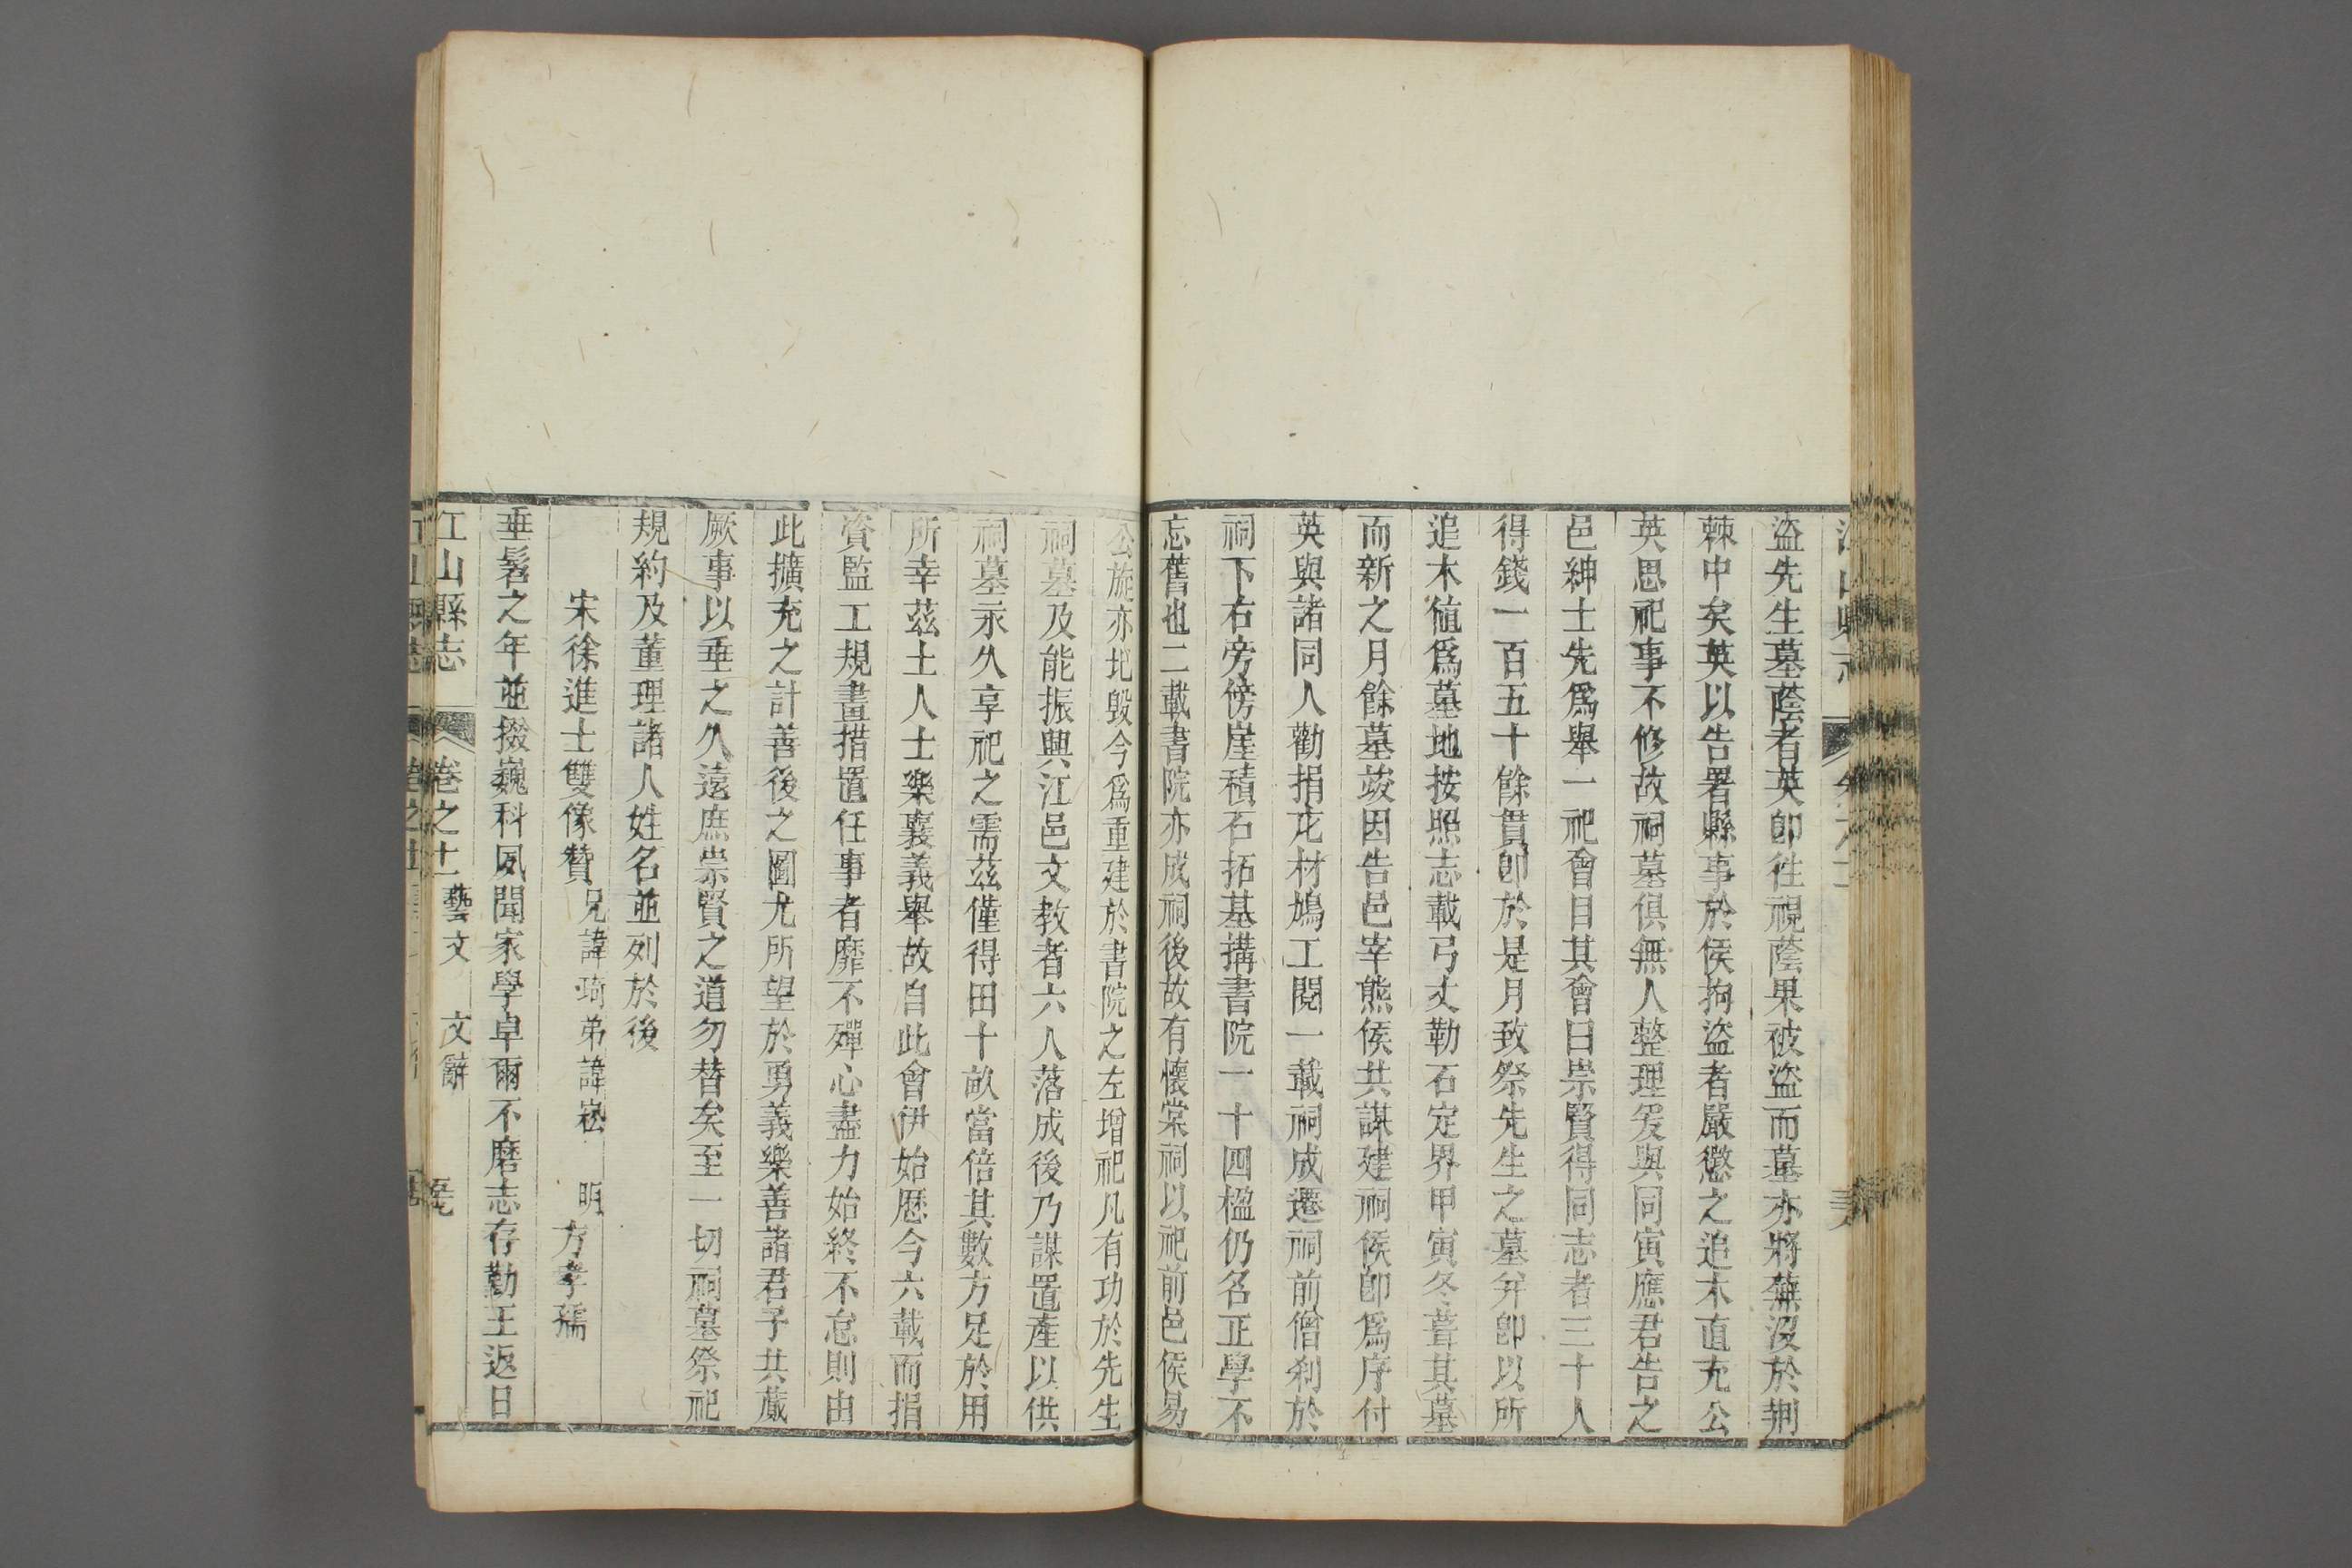 盜先生墓蔭者英卽徃視蔭果被盜而墓亦將蕪沒於荆
棘中矣英以告署縣事於侯拘盜者嚴懲之追木直充公
英思祀事不修故祠墓俱無人整理爰與同寅應君告之
邑紳士先爲舉一祀會目其會曰崇賢得同志者三十人
得錢一百五十餘貫卽於是月致祭先生之墓并卽以所
追木値爲墓地按照志載弓丈勒石定界甲寅冬葺其墓
而新之月餘墓竣因告邑宰熊侯共謀建祠侯卽爲序付
英與諸同人勸捐庀材鳩工閱一載祠成遷祠前僧刹於
祠下右旁傍崖積石拓基搆書院一十四楹仍名正學不
忘舊也二載書院亦成祠後故有懷棠祠以祀前邑侯易
公旋亦圮毀今爲重建於書院之左增祀凡有功於先生
祠墓及能振興江邑文敎者六人落成後乃謀置產以供
祠墓永久享祀之需茲僅得田十畝當倍其數方足於用
所幸茲土人士樂襄義舉故自此會伊始歷今六載而捐
資監工規畫措置任事者靡不殫心盡力始終不怠則由
此擴充之計善後之圖尤所望於勇義樂善諸君子共蕆
厥事以垂之久遠庶崇賢之道勿替矣至一切祠墓祭祀
規約及董理諸人姓名並列於後
宋徐進士雙像贊 兄諱琦弟諱崧 明 方孝孺
垂髫之年並掇巍科夙聞家學卓爾不磨志存勤王返日
江山縣志 卷之十一 藝文 文辭